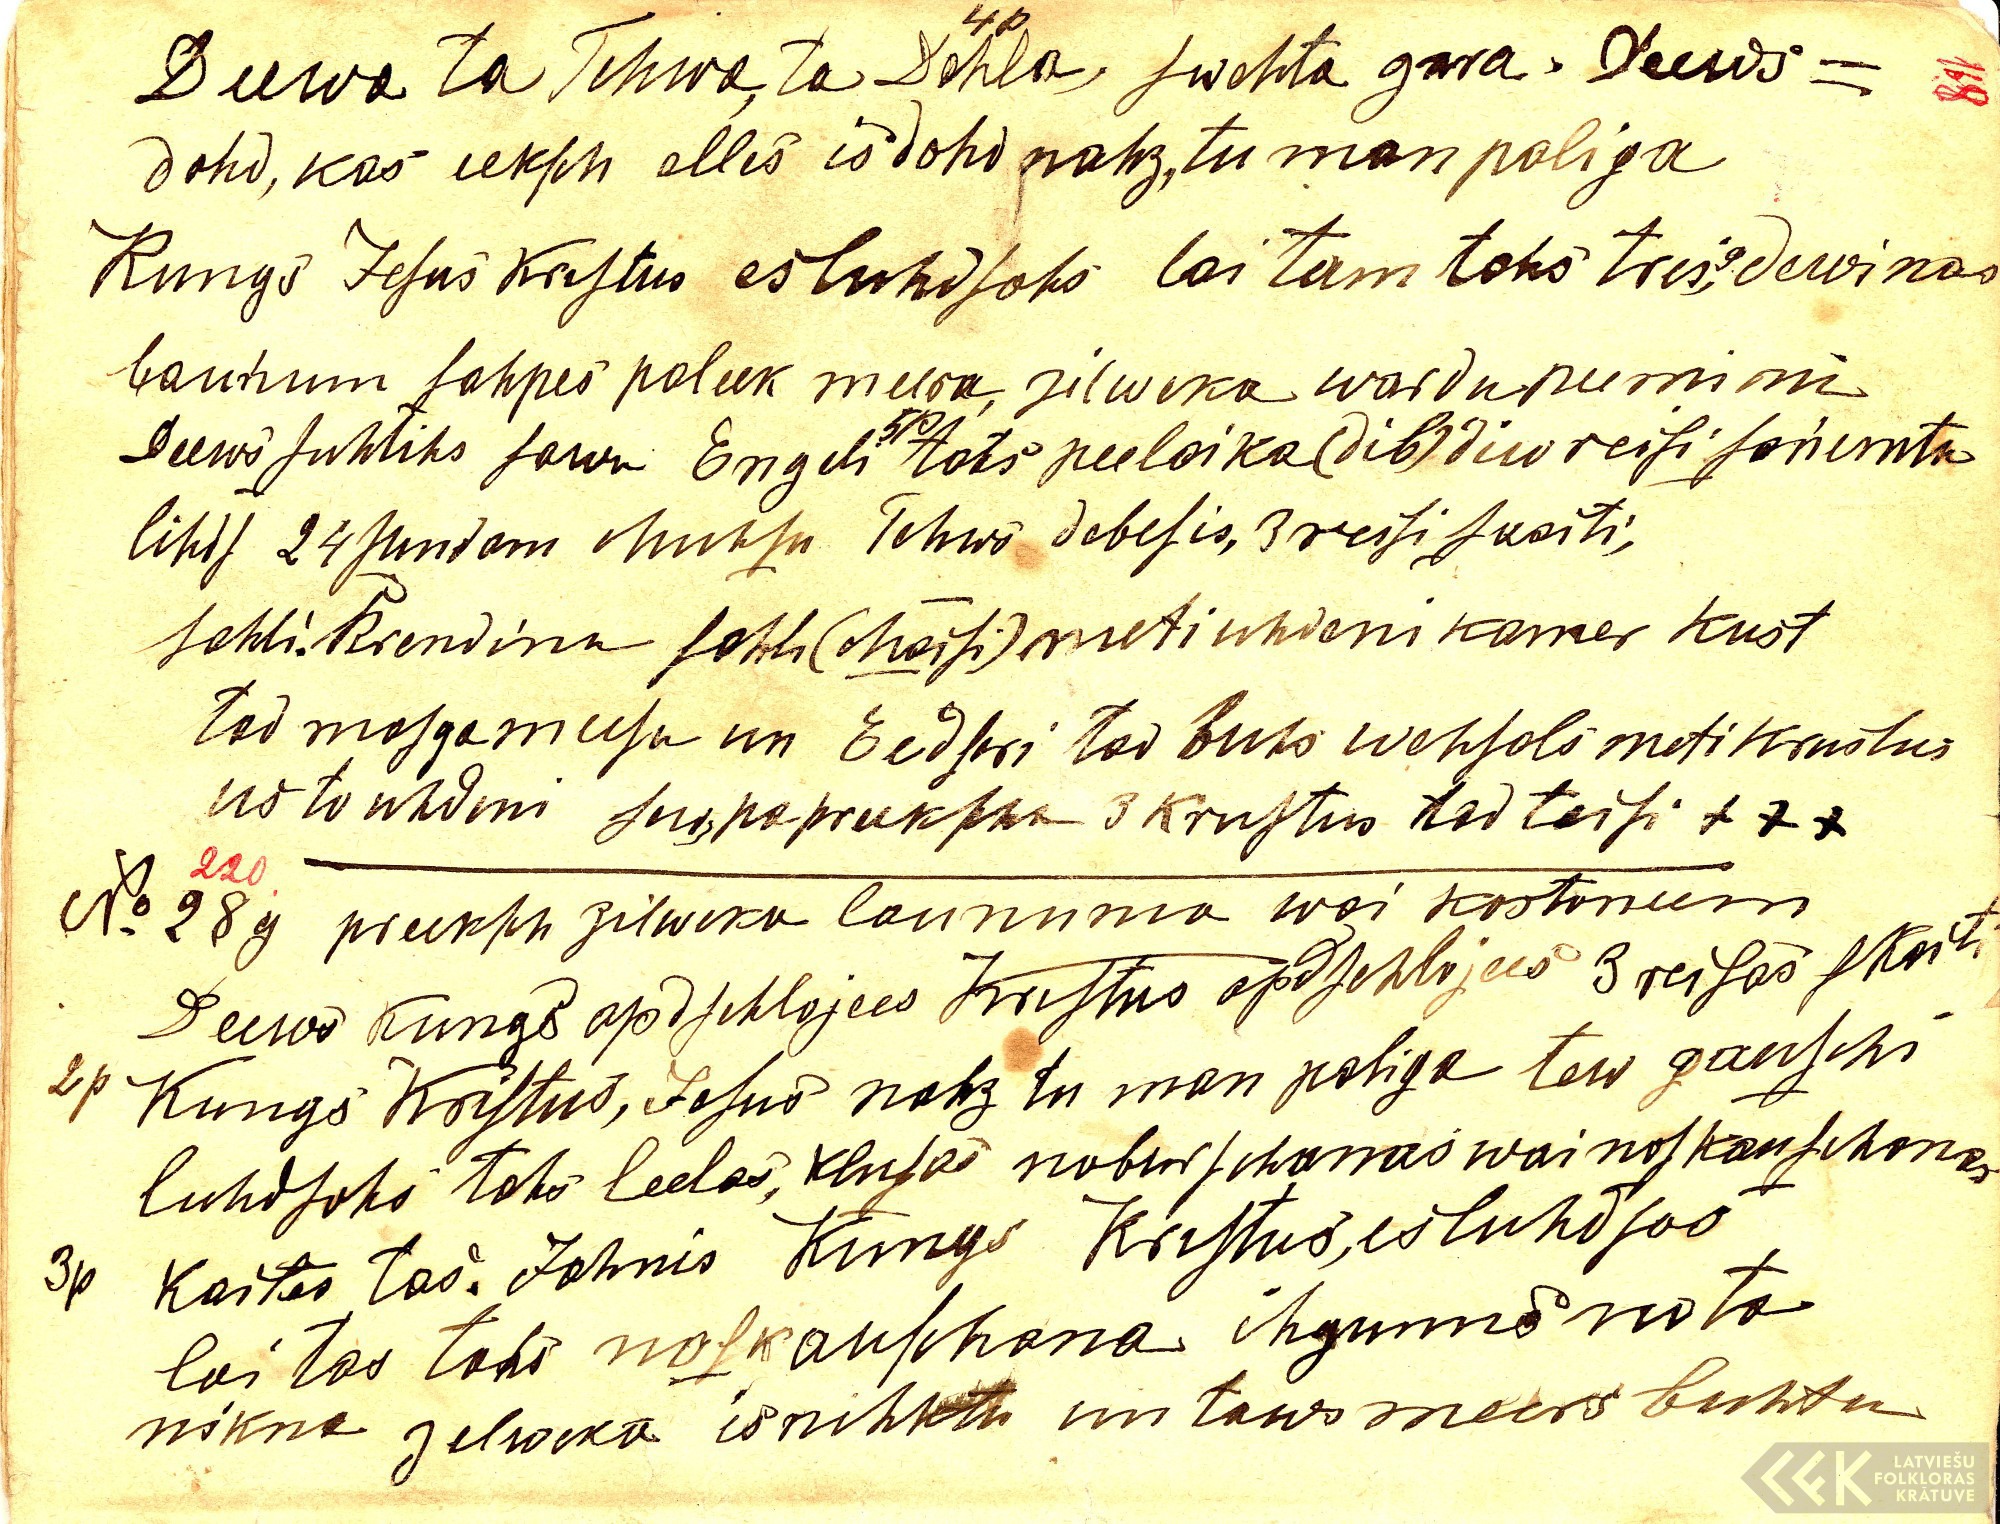 4p
Deewa ta Tehwa, ta Dehla, swehta gara. Deews =
168
dohd, kas eeksch elles isdohd nahz, tu man paliga
Kungs Jesus Kristus es luhdsohs lai tam tahs tris, 9 dewinas
launum sahpes paleek meera, zilweka wardu peemini
5p
Deews suhtihs sawu Engeli tahs peelaika (dib) diw reisi saņemtu
lihds 24 stundam muhsu Tehws debesis, 3 reisi skaiti,
sahli. Krendinu sahli (maisi) meti uhdeni kamer kust
tad masga meesu un Eedseri tad buhs wehsels meti krustus
us to uhdeni sew, pa preekschu 3 krustus tad teisi + + +
220.
No. 28g preeksch zilweka launuma wai kastaneem
Deews Kungs apdschlojees Kristus apdschlojees 3 reisas skaiti
2p Kungs Kristus, Jesus nahz tu man paliga tew gauschi
luhdsohs tahs leelas, klusas noburschanas wai noskauschanas
3p kaites tas. Jahnis Kungs Kristus, es luhdsos
lai tas tahs noskauschana ihgnums no ta
nikna zelweka isnihktu un taws meers buhtu
LATVIEŠU
FOLKLORAS
KRĀTUVE